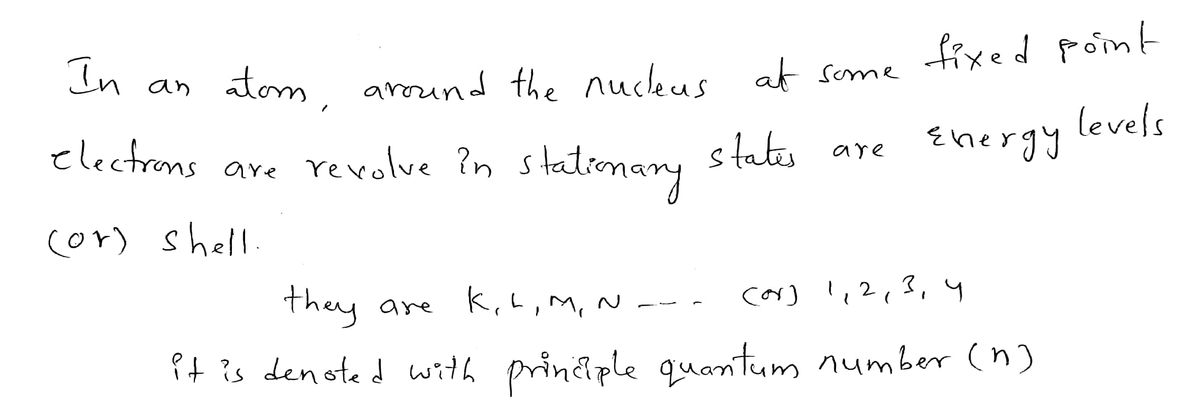 In an atom, around the nucleus at some fixed point
electrons are revolve in stationary states are energy levels
(or) shell.
they are K, L, M, N --- (or) 1, 2, 3, 4
it is denoted with principle quantum number (n)